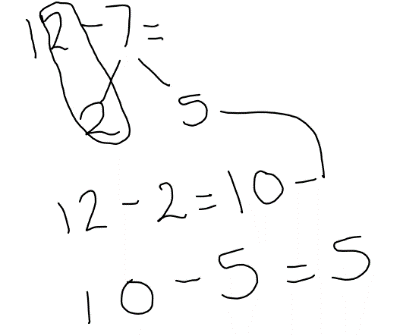 12-7=
2 5
12-2=10-
10-5=5